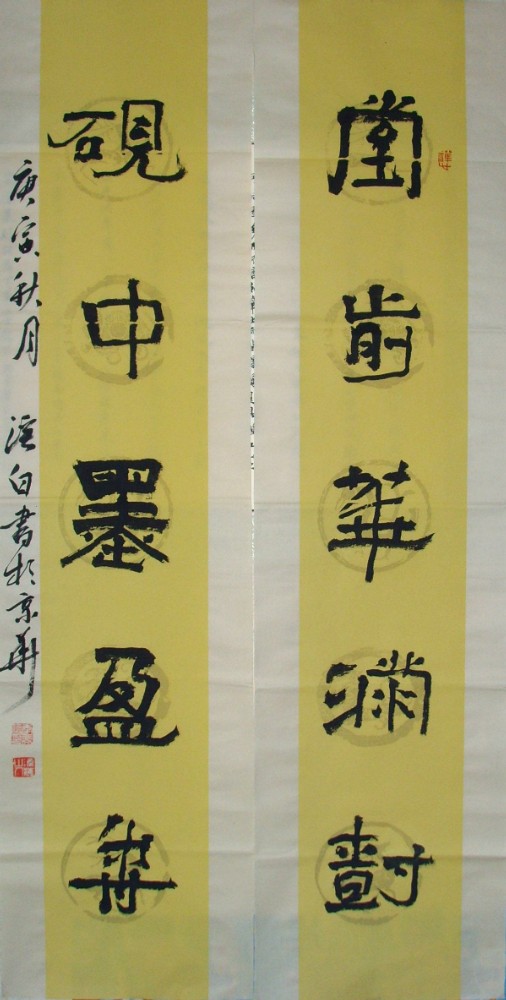 堂前華滿
硯中墨盈
庚寅秋月 白書於京華